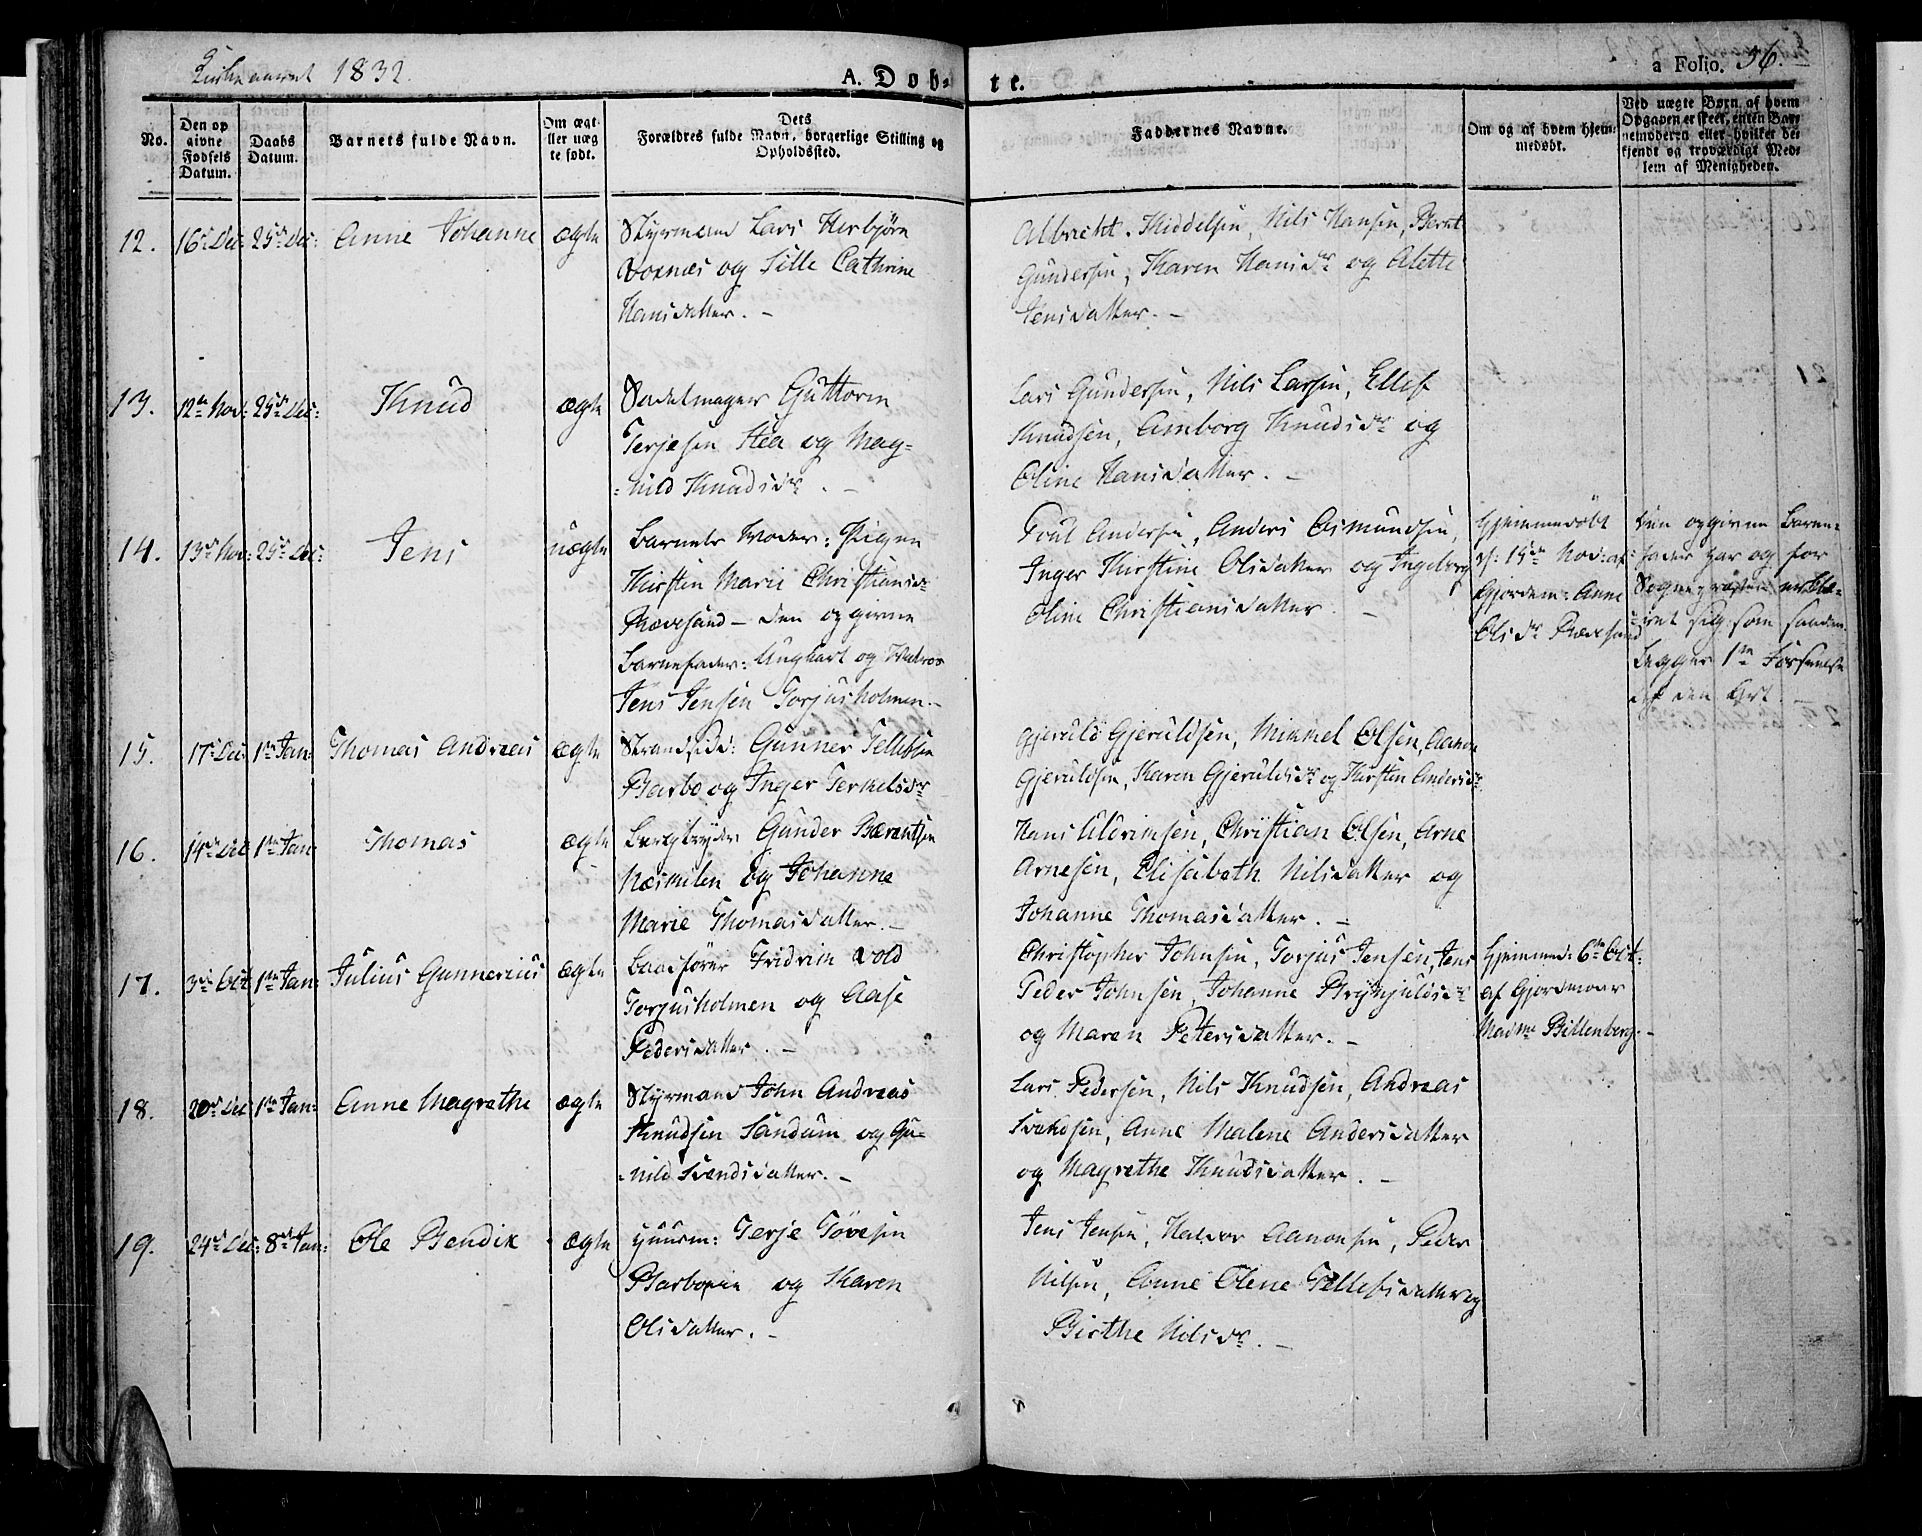 Kirkeaaret 1832.
A. Døb-
te.
a Folio. 56.
No.
Den op
givne
Fødsels
Datum.
Daabs
Datum.
Barnets fulde Navn.
Om ægte
eller uæg
te født.
Dets
Forældres fulde Navn, borgerlige Stilling og
Opholdssted.
Faddernes Navne.
Om og af hvem hjem-
medøbt.
Ved uægte Børn, af hvem
Opgaven er skeet, enten Bar-
nemoderen eller hvilket be-
kjendt og troværdigt Med-
lem af Menigheden.
12. 16de Dec: 25de Dec: Anne Johanne ægte Styrmand Lars Herbjörn
Voxnæs og Sille Cathrine
Hansdatter. -
Albrecht Middelsen, Nils Hansen, Bernt
Gundersen, Karen Hansdr og Alette
Jensdatter. -
13. 12te Nov: 25de Dec: Knud ægte Sadelmager Guttorm
Terjesen Stea og Mag-
=nild Knudsdr. -
Lars Gundersen, Nils Larsen, Ellef
Knudsen, Amborg Knudsdr og
Oline Hansdatter. -
14. 13de Nov: 25de Dec: Jens uægte Barnets Moder: Pigen
Kirsten Marie Christiansdr
Rævesand - den opgivne
Barnefader: Ungkarl og Matros
Jens Jensen Torjusholmen. -
Poul Andersen, Anders Osmundsen,
Inger Kirstine Olsdatter og Ingeborg
Oline Christiansdatter. -
Hjemmedöbt
d: 15de Nov: af
Gjordem: Anne
Olsdr Rævesand
Den opgivne Barne-
fader har og for
Sognepræsten erklæ-
ret sig som saadan.
Begges 1ste Forseelse
af den Art. -
15. 17de Dec: 1ste Jan: Thomas Andreas ægte Strandsid: Gunner Tellefsen
Barbo og Inger Terkelsdr
Gjeruld Gjeruldsen, Mikkel Olsen, Aanon
Gjeruldsen, Karen Gjeruldsdr og Kirsten Andersdr
16. 14de Dec 1ste Jan: Thomas ægte Bergbryder Gunder Berentsen
Næskilen og Johanne
Marie Thomasdatter. -
Hans Aldrimsen, Christian Olsen, Arne
Arnesen, Elisabeth Nilsdatter og
Johanne Thomasdatter. -
17. 3die Oct 1ste Jan: Julius Gunnerius ægte Baadförer Fridrik Vold
Torjusholmen og Aase
Pedersdatter. -
Christopher Johnsen, Torjus Jensen, Jens
Peder Johnsen, Johanne Brynjulsdr
og Maren Petersdatter. -
Hjemmed: 6te Oct:
af Gjordmoder
Madme Billenberg. -
18. 20de Dec 1ste Jan: Anne Magrethe ægte Styrmand John Andreas
Knudsen Sandum og Gu-
=nild Svendsdatter. -
Lars Pedersen, Nils Knudsen, Andreas
Svendsen, Anne Malene Andersdatter
og Magrethe Knudsdatter. -
19. 24de Dec: 8de Jan: Ole Bendix ægte Huusm: Terje Tövesen
og Karen
Olsdatter. -
Jens Jensen, Halvor Aanonsen, Peder
Nilsen, Anne Olene Tellefsdatter og
Birthe Nilsdr. -